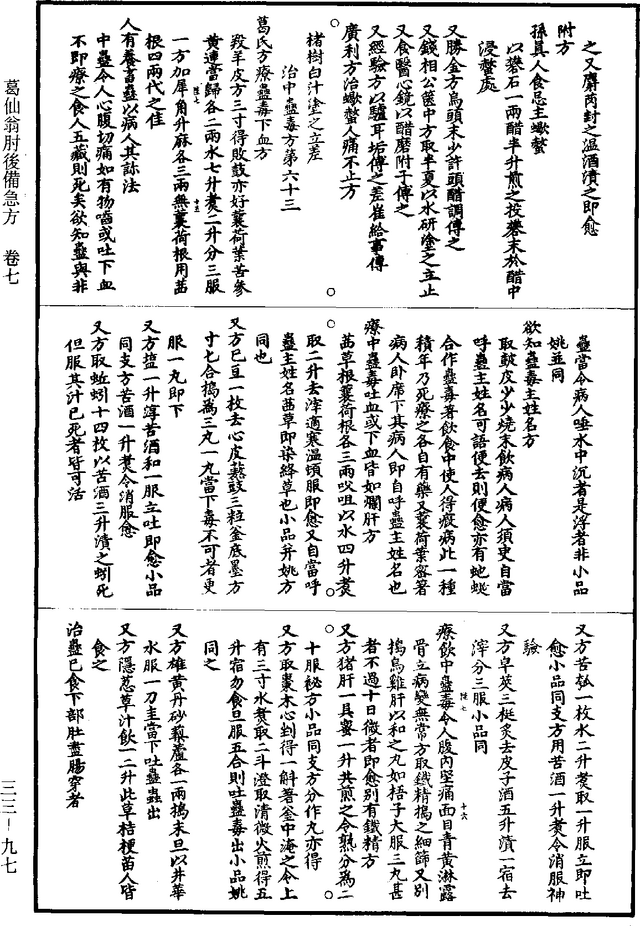 之又麝芮封之温酒漬之即愈
附方
孫真人食忌主蠍螫
以礬石一兩醋半升煎之投礬末於醋中
浸螫處
又勝金方烏頭末少許頭醋調傅之
又錢相公篋中方取半夏以水研塗之立止
又食醫心鏡以醋磨附子傅之
又經驗方以驢耳垢傅之差崔給事傳
廣利方治蠍螫人痛不止方
楮樹白汁塗之立差
治中蠱毒方第六十三
葛氏方療蠱毒下血方
羖羊皮方三寸得敗鼓亦好蘘荷葉苦參
黄連當歸各二兩水七升煑二升分三服
一方加犀角升麻各三兩無蘘荷根用茜
根四兩代之佳
人有養畜蠱以病人其診法
中蠱令人心腹切痛如有物嚙或吐下血
不即療之食人五藏則死矣欲知蠱與非
蠱當令病人唾水中沉者是浮者非小品
姚並同
欲知蠱毒主姓名方
取皷皮少少燒末飲病人病人須㬰自當
呼蠱主姓名可語便去則便愈亦有虵蜒
合作蠱毒著飲食中使人得瘕病此一種
積年乃死療之各自有藥又蘘荷葉密著
病人卧席下其病人即自呼蠱主姓名也
療中蠱毒吐血或下血皆如爛肝方
茜草根蘘荷根各三兩㕮咀以水四升煑
取二升去滓適寒温頓服即愈又自當呼
蠱主姓名茜草即染絳草也小品并姚方
同也
又方巳豆一枚去心皮熬豉三粒釜底墨方
寸匕合搗為三丸一丸當下毒不可者更
服一丸即下
又方塩一升淳苦酒和一服立吐即愈小品
同支方苦酒一升煑令消服愈
又方取蚯蚓十四枚以苦酒三升漬之蚓死
但服其汁已死者皆可活
又方苦瓠一枚水二升煑取一升服立即吐
愈小品同支方用苦酒一升煑令消服神
驗
又方皁莢三梃炙去皮子酒五升漬一宿去
滓分三服小品同
療飲中蠱毒令人腹内堅痛面目青黄淋露
骨立病變無常方取鐵精搗之細篩又别
搗烏雞肝以和之丸如梧子大服三丸甚
者不過十日微者即愈别有鐵精方
又方猪肝一具蜜一升共煎之令熟分為二
十服秘方小品同支方分作丸亦得
又方取棗木心剉得一斛著釜中淹之令上
有三寸水煑取二斗澄取清微火煎得五
升宿勿食旦服五合則吐蠱毒出小品姚
同之
又方雄黄丹砂藜蘆各一兩搗末旦以井華
水服一刀圭當下吐蠱蟲出
又方隱荵草汁飲一二升此草桔梗苗人皆
食之
治蠱已食下部肚盡腸穿者
葛仙翁肘後備急方 卷七
三三－九七